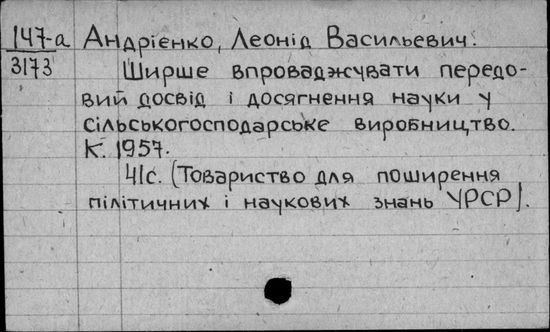 147-а Андрієнко, Леонід Васильевич.
3173 Ширше впроваджувати передо-
вий досвід і досягнення науки у
сільськогосподарське виробництво.
К. 1957.
41с. (Товариство для поширення
пілітичних і наукових знань УРСР).